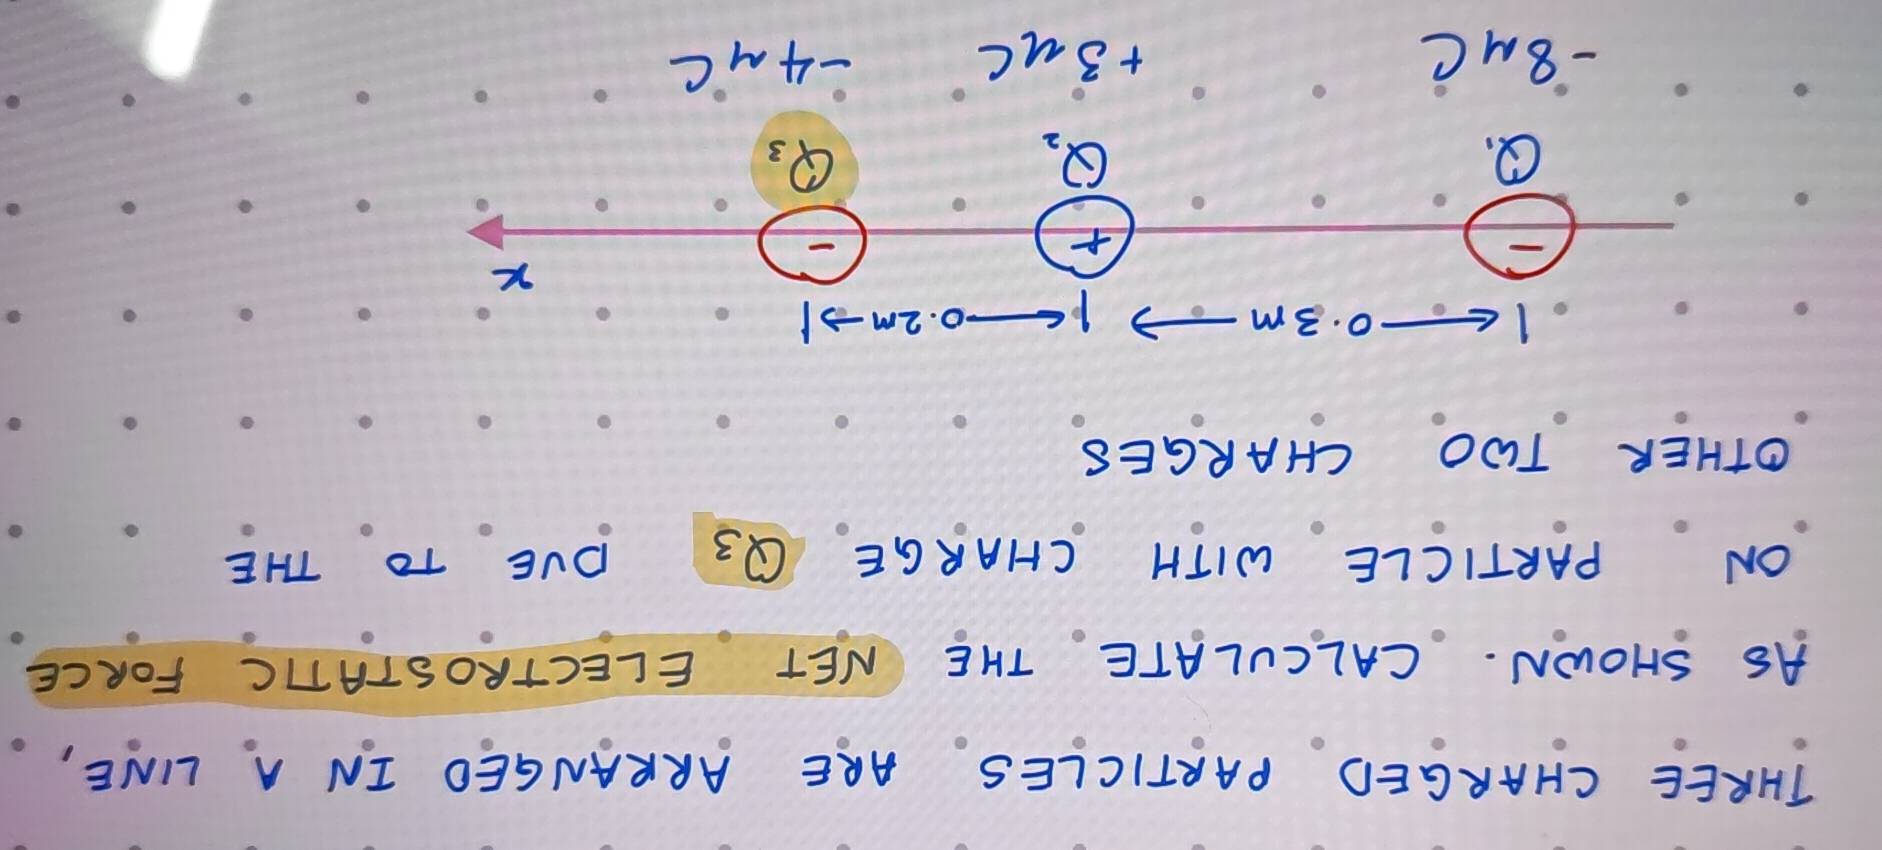 THREE CHARGED PARTICLES ARE ARRANGED IN A LINE,
AS SHOWN. CALCULATE THE NET ELECTROSTATIC FORCE
ON PARTICLE WITH CHARGE Q3 DUE TO THE
OTHER TWO CHARGES
|<—0.3m—> |<—0.2m→|
x
- + -
Q1 Q2 Q3
-8μC +3μC -4μC